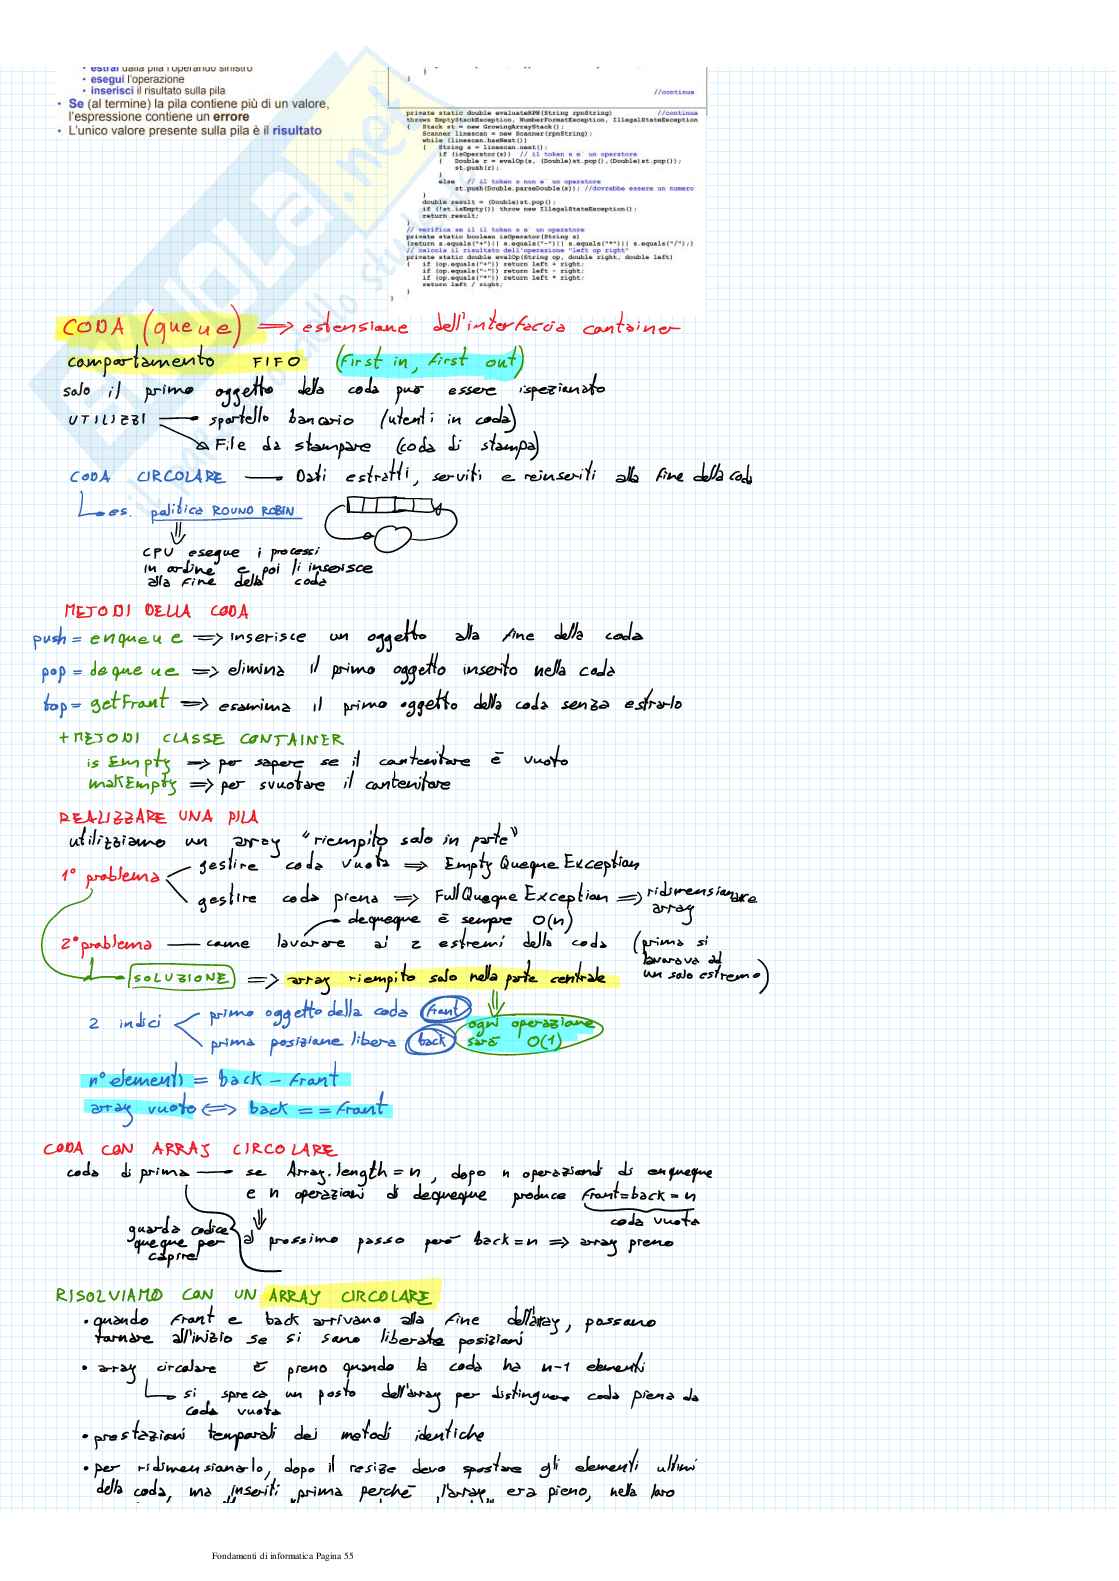 • estrai dalla pila l'operando sinistro
• esegui l'operazione
• inserisci il risultato sulla pila
• Se (al termine) la pila contiene più di un valore,
l'espressione contiene un errore
• L'unico valore presente sulla pila è il risultato
}
}
//continua
private static double evaluateRPN(String rpnString) //continua
throws EmptyStackException, NumberFormatException, IllegalStateException
{ Stack st = new GrowingArrayStack();
Scanner linescan = new Scanner(rpnString);
while (linescan.hasNext())
{ String s = linescan.next();
if (isOperator(s)) // il token s e' un operatore
{ Double r = evalOp(s, (Double)st.pop(),(Double)st.pop());
st.push(r);
}
else // il token s non e' un operatore
st.push(Double.parseDouble(s)); //dovrebbe essere un numero
}
double result = (Double)st.pop();
if (!st.isEmpty()) throw new IllegalStateException();
return result;
}
// verifica se il il token s e' un operatore
private static boolean isOperator(String s)
{return s.equals("+")|| s.equals("-")|| s.equals("*")|| s.equals("/");}
// calcola il risultato dell'operazione "left op right"
private static double evalOp(String op, double right, double left)
{ if (op.equals("+")) return left + right;
if (op.equals("-")) return left - right;
if (op.equals("*")) return left * right;
return left / right;
}
}
CODA (queue) ⟹ estensione dell'interfaccia container
comportamento FIFO (First in, First out)
solo il primo oggetto della coda può essere ispezionato
UTILIZZI → sportello bancario (utenti in coda)
→ File da stampare (coda di stampa)
CODA CIRCOLARE → Dati estratti, serviti e reinseriti alla fine della coda
→ es. politica ROUND ROBIN
⇓
CPU esegue i processi
in ordine e poi li inserisce
alla fine della coda
METODI DELLA CODA
push = enqueue ⟹ inserisce un oggetto alla fine della coda
pop = dequeue ⟹ elimina il primo oggetto inserito nella coda
top = getFront ⟹ esamina il primo oggetto della coda senza estrarlo
+ METODI CLASSE CONTAINER
isEmpty ⟹ per sapere se il contenitore è vuoto
makEmpty ⟹ per svuotare il contenitore
REALIZZARE UNA PILA
utilizziamo un array "riempito solo in parte"
1° problema
gestire coda vuota ⟹ Empty Queque Exception
gestire coda piena ⟹ FullQueque Exception ⟹ ridimensionare
array
dequeque è sempre O(n)
2° problema — come lavorare ai 2 estremi della coda (prima si
lavorava ad
un solo estremo)
SOLUZIONE ⟹ array riempito solo nella parte centrale
⇓
2 indici
primo oggetto della coda front
prima posizione libera back
ogni operazione
sarà O(1)
n° elementi = back - front
array vuoto ⟺ back == front
CODA CON ARRAY CIRCOLARE
coda di prima → se Array.length = n, dopo n operazioni di enqueque
e n operazioni di dequeque produce front=back=n
coda vuota
guarda codice
queque per
capire!
⇓
al prossimo passo però back=n ⟹ array pieno
RISOLVIAMO CON UN ARRAY CIRCOLARE
• quando front e back arrivano alla fine dell'array, possono
tornare all'inizio se si sono liberate posizioni
• array circolare è pieno quando la coda ha n-1 elementi
→ si spreca un posto dell'array per distinguere coda piena da
coda vuota
• prestazioni temporali dei metodi identiche
• per ridimensionarlo, dopo il resize devo spostare gli elementi ultimi
della coda, ma inseriti prima perché l'array era pieno, nella loro
Fondamenti di informatica Pagina 55